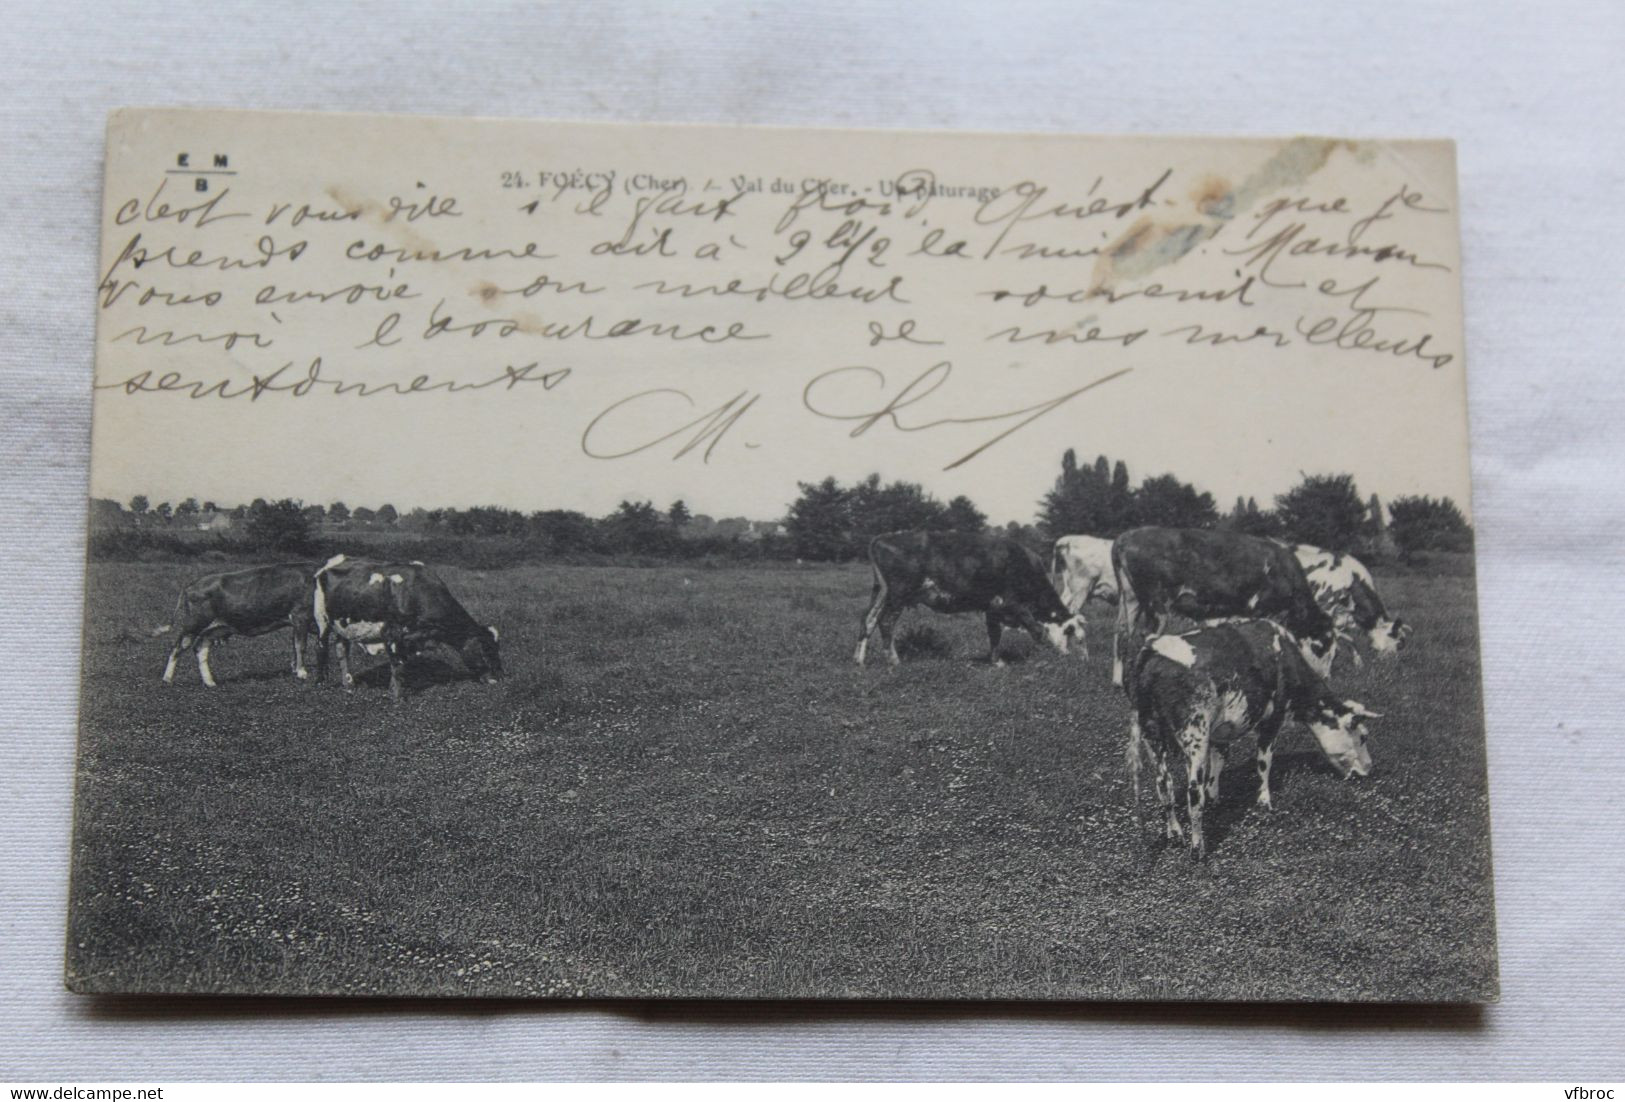 E M
B
24. FOËCY (Cher) — Val du Cher. - Un Pâturage
c'est vous dire s'il fait froid Qu'est-ce que je
prends comme air à 9h 1/2 la nuit! Maman
vous envoie son meilleur souvenir et
moi l'assurance de mes meilleurs
sentiments
M.
vfbroc